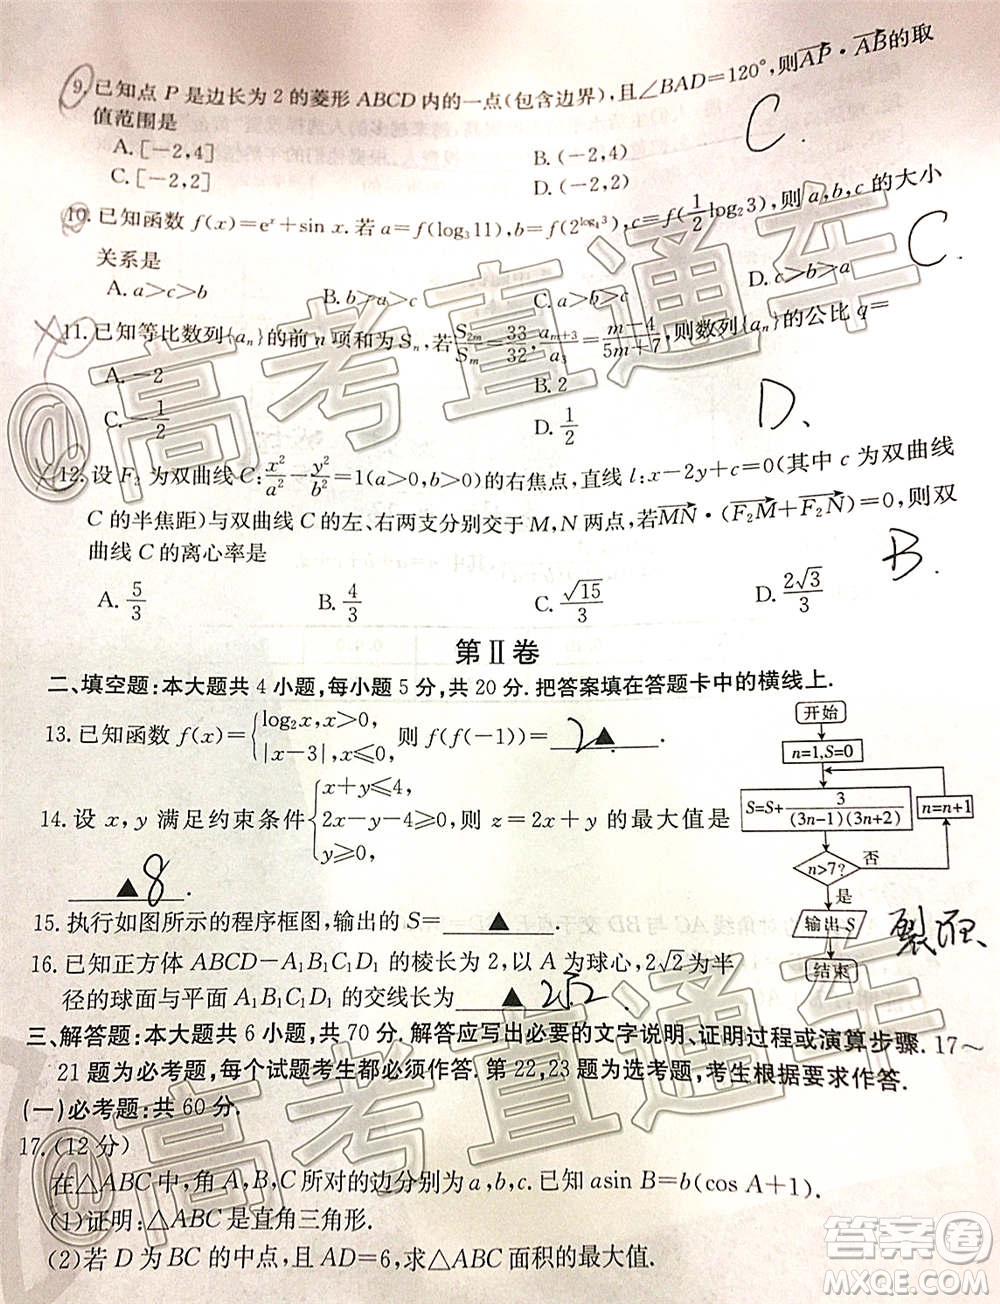 9. 已知点 P 是边长为 2 的菱形 ABCD 内的一点(包含边界),且∠BAD=120°,则AP·AB的取
值范围是
C.
A. [-2,4]
B. (-2,4)
C. [-2,2]
D. (-2,2)
10. 已知函数 f(x)=eˣ+sin x. 若 a=f(log₃11), b=f(2^{log₄3}), c=f(1/2 log₂3), 则 a,b,c 的大小
关系是
C.
A. a>c>b
B. b>a>c
C. a>b>c
D. c>b>a
11. 已知等比数列{aₙ}的前 n 项和为 Sₙ, 若 S₂ₘ/Sₘ=33/32, aₘ₊₃/a₃=(m-4)/(5m+7), 则数列{aₙ}的公比 q=
A. -2
B. 2
C. -1/2
D. 1/2
D.
12. 设 F₂ 为双曲线 C: x²/a²-y²/b²=1(a>0,b>0)的右焦点,直线 l:x-2y+c=0(其中 c 为双曲线
C 的半焦距)与双曲线 C 的左、右两支分别交于 M,N 两点,若MN·(F₂M+F₂N)=0,则双
曲线 C 的离心率是
B.
A. 5/3
B. 4/3
C. √15/3
D. 2√3/3
第Ⅱ卷
二、填空题:本大题共 4 小题,每小题 5 分,共 20 分. 把答案填在答题卡中的横线上.
13. 已知函数 f(x)={log₂x,x>0, |x-3|,x≤0, 则 f(f(-1))=2▲.
14. 设 x,y 满足约束条件{x+y≤4, 2x-y-4≥0, y≥0, 则 z=2x+y 的最大值是
▲8.
开始
n=1,S=0
S=S+3/((3n-1)(3n+2))
n=n+1
n>7?
否
是
输出 S
结束
裂项
15. 执行如图所示的程序框图,输出的 S=▲.
16. 已知正方体 ABCD-A₁B₁C₁D₁ 的棱长为 2,以 A 为球心,2√2为半
径的球面与平面 A₁B₁C₁D₁ 的交线长为▲2√2.
三、解答题:本大题共 6 小题,共 70 分. 解答应写出必要的文字说明、证明过程或演算步骤. 17~
21 题为必考题,每个试题考生都必须作答. 第 22,23 题为选考题,考生根据要求作答.
(一)必考题:共 60 分.
17. (12 分)
在△ABC 中,角 A,B,C 所对的边分别为 a,b,c. 已知 asin B=b(cos A+1).
(1)证明:△ABC 是直角三角形.
(2)若 D 为 BC 的中点,且 AD=6,求△ABC 面积的最大值.
@高考直通车
@高考直通车
答案卷
MXQE.COM